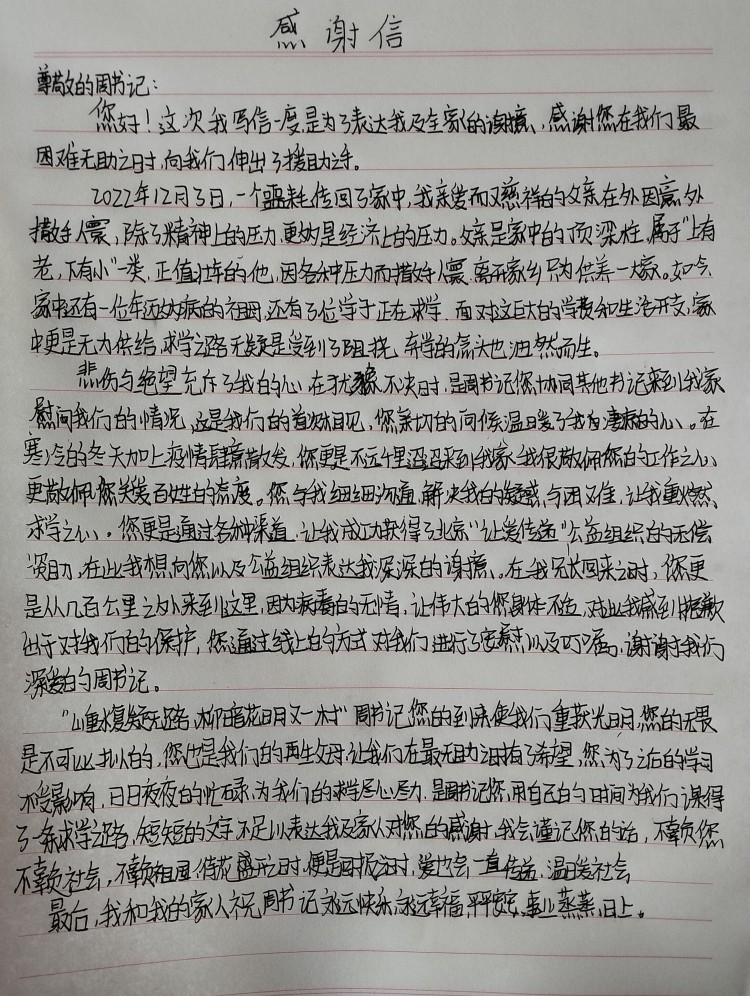 感谢信
尊敬的周书记:
您好!这次我写信一度是为了表达我及全家的谢意、感谢您在我们最
困难无助之时,向我们伸出了援助之手。
2022年12月3日,一个噩耗传回了家中,我亲爱而又慈祥的父亲在外因意外
撒手人寰,除了精神上的压力,更多的是经济上的压力。父亲是家中的顶梁柱,属于"上有
老,下有小"一类,正值壮年的他,因各种压力而撒手人寰,离开家乡只为供养一大家。如今,
家中还有一位年迈多病的祖母,还有3位学子正在求学,面对这巨大的学费和生活开支,家
中更是无力供给,求学之路无疑是受到了阻挠,弃学的念头也油然而生。
悲伤与绝望充斥了我的心,在犹豫不决时,是周书记您协同其他书记来到我家
慰问我们的情况,这是我们的首次相见,您亲切的问候温暖了我有凄凉的心。在
寒冷的冬天加上疫情肆虐散发,您更是不远千里迢迢来到我家,我很敬佩您的工作之心,
更敬佩您关爱百姓的态度。您与我细细沟通,解决我的疑惑与困难,让我重燃
求学之心。您更是通过各种渠道,让我成功获得了北京"让爱传递"公益组织的无偿
资助,在此我想向您以及公益组织表达我深深的谢意。在我兄长回来之时,您更
是从几百公里之外来到这里,因为病毒的无情,让伟大的您身体不适,对此我感到抱歉,
出于对我们的保护,您通过线上的方式对我们进行了安慰以及叮嘱,谢谢于我们
深爱的周书记。
"山重水复疑无路,柳暗花明又一村"周书记您的到来使我们重获光明,您的无畏
是不可比拟的,您也是我们的再生父母,让我们在最无助之时有了希望,您为了之后的学习
不受影响,日日夜夜的忙碌,为我们的求学尽心尽力,是周书记您,用自己的时间为我们谋得
了一条求学之路,短短的文字不足以表达我及家人对您的感谢,我会谨记您的话,不辜负您
不辜负社会,不辜负祖国,待花盛开之时,便是回报之时,爱也会一直传递,温暖社会
最后,我和我的家人祝周书记永远快乐,永远幸福,平平安安,事业蒸蒸日上。